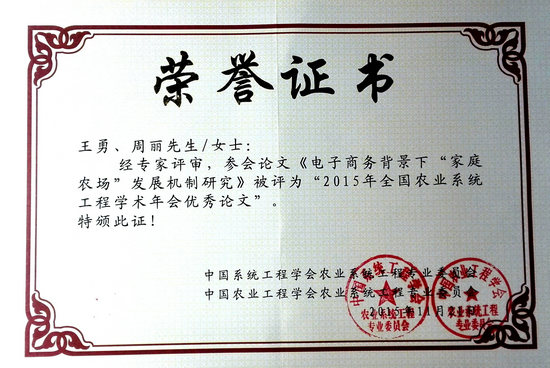 荣誉证书
王勇、周丽先生/女士:
经专家评审，参会论文《电子商务背景下“家庭
农场”发展机制研究》被评为“2015年全国农业系统
工程学术年会优秀论文”。
特颁此证!
中国系统工程学会农业系统工程专业委员会
中国农业工程学会农业系统工程专业委员会
2015年11月
农业系统工程
专业委员会
农业系统工程
专业委员会